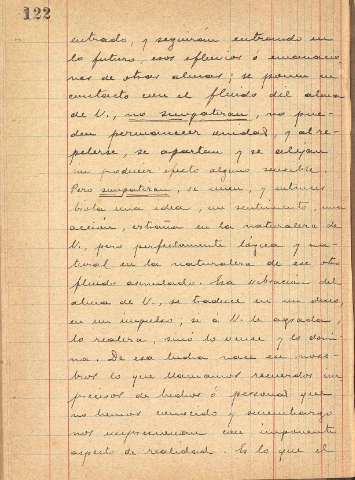 122
entrado, y seguiran entrando en
lo futuro, esos efluvios ó emanacio
nes de otras almas; se ponen en
contacto con el fluido del alma
de V., no simpatizan, no pue-
den permanecer unidas, y al re-
pelerse, se apartan y se alejan
sin producir efecto alguno sensible.
Pero simpatizan, se unen, y entonces
brota una idea, un sentimiento, una
acción, estraña en la naturaleza de
V., pero perfectamente lógica y na-
tural en la naturaleza de ese otro
fluido asimilado. Esa vibracion del
alma de V., se traduce en un deseo,
en un impulso, se á V. le agrada,
lo realiza, sinó lo vence y lo domi-
na. De esa lucha nace en noso-
tros lo que llamamos recuerdos im
precisos de hechos ó personas que
no hemos conocido y sin embargo
nos impresionan con imponente
aspecto de realidad. Es lo que el